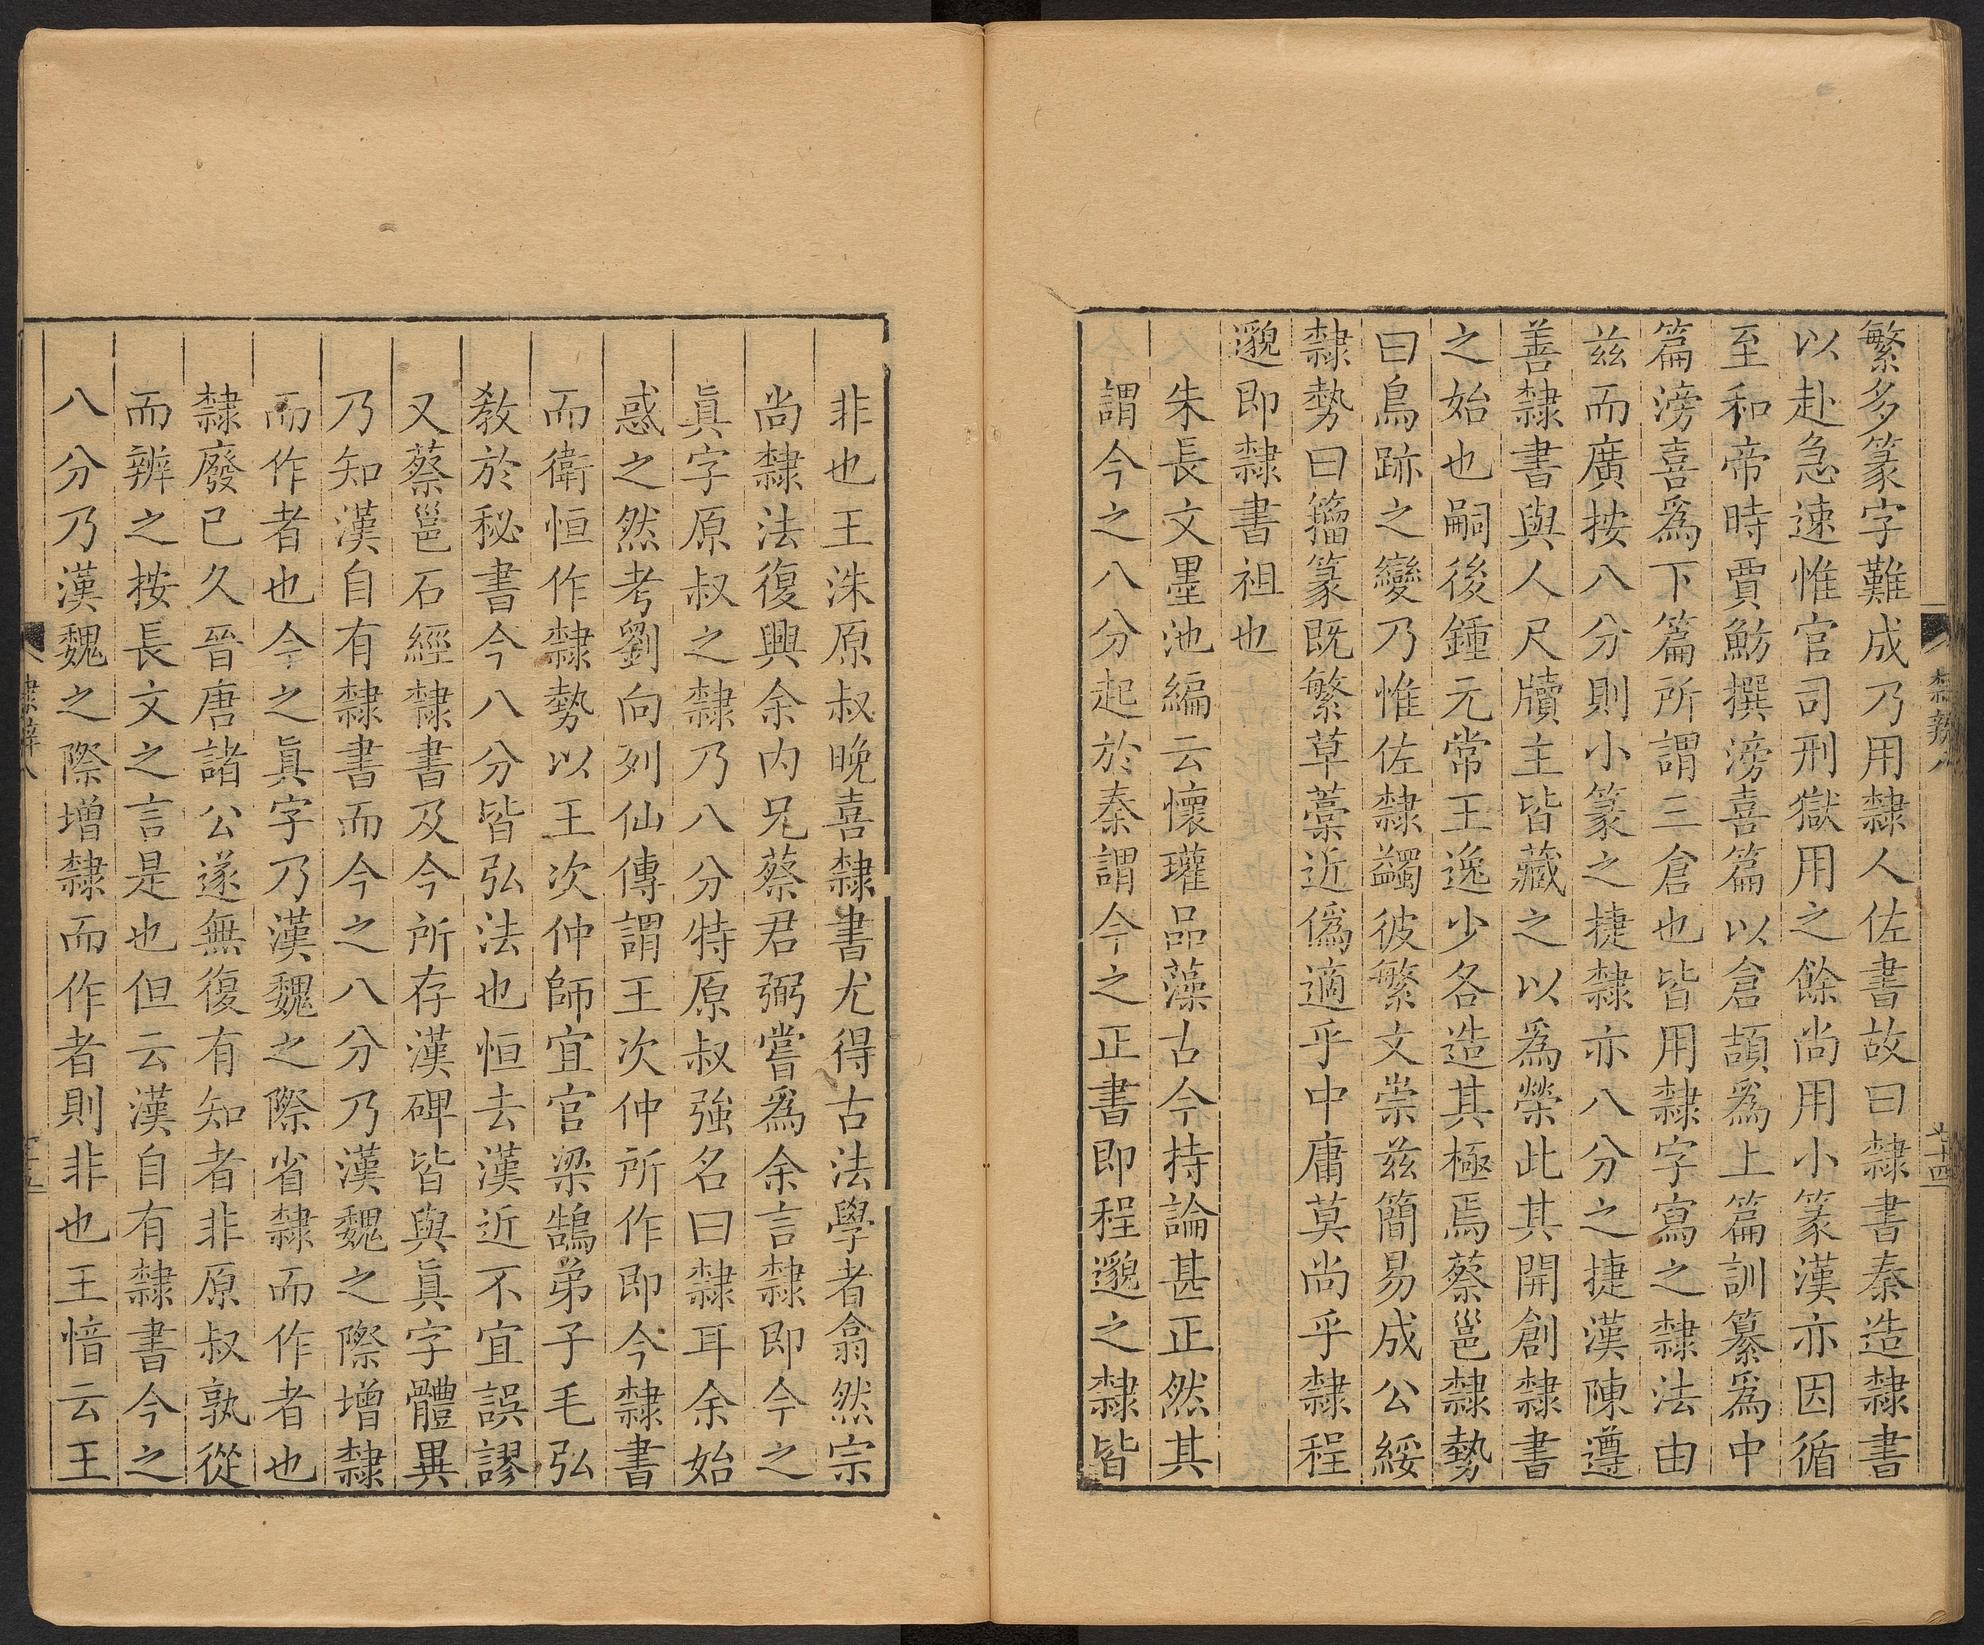 繁多篆字難成乃用隸人佐書故曰隸書秦造隸書
以赴急速惟官司刑獄用之餘尚用小篆漢亦因循
至和帝時賈魴撰滂喜篇以倉頡爲上篇訓纂爲中
篇滂喜爲下篇所謂三倉也皆用隸字寫之隸法由
兹而廣按八分則小篆之捷隸亦八分之捷漢陳遵
善隸書與人尺牘主皆藏之以爲榮此其開創隸書
之始也嗣後鍾元常王逸少各造其極焉蔡邕隸勢
曰鳥跡之變乃惟佐隸蠲彼繁文崇兹簡易成公綏
隸勢曰籀篆既繁草藁近僞適乎中庸莫尚乎隸程
邈即隸書祖也
朱長文墨池編云懷瓘品藻古今持論甚正然其
謂今之八分起於秦謂今之正書即程邈之隸皆
隸辨八
七十四
非也王洙原叔晚喜隸書尤得古法學者翕然宗
尚隸法復興余内兄蔡君弼嘗爲余言隸即今之
眞字原叔之隸乃八分特原叔強名曰隸耳余始
惑之然考劉向列仙傳謂王次仲所作即今隸書
而衛恒作隸勢以王次仲師宜官梁鵠弟子毛弘
教於秘書今八分皆弘法也恒去漢近不宜誤謬
又蔡邕石經隸書及今所存漢碑皆與眞字體異
乃知漢自有隸書而今之八分乃漢魏之際增隸
而作者也今之眞字乃漢魏之際省隸而作者也
隸廢已久晉唐諸公遂無復有知者非原叔孰從
而辨之按長文之言是也但云漢自有隸書今之
八分乃漢魏之際增隸而作者則非也王愔云王
隸辨八